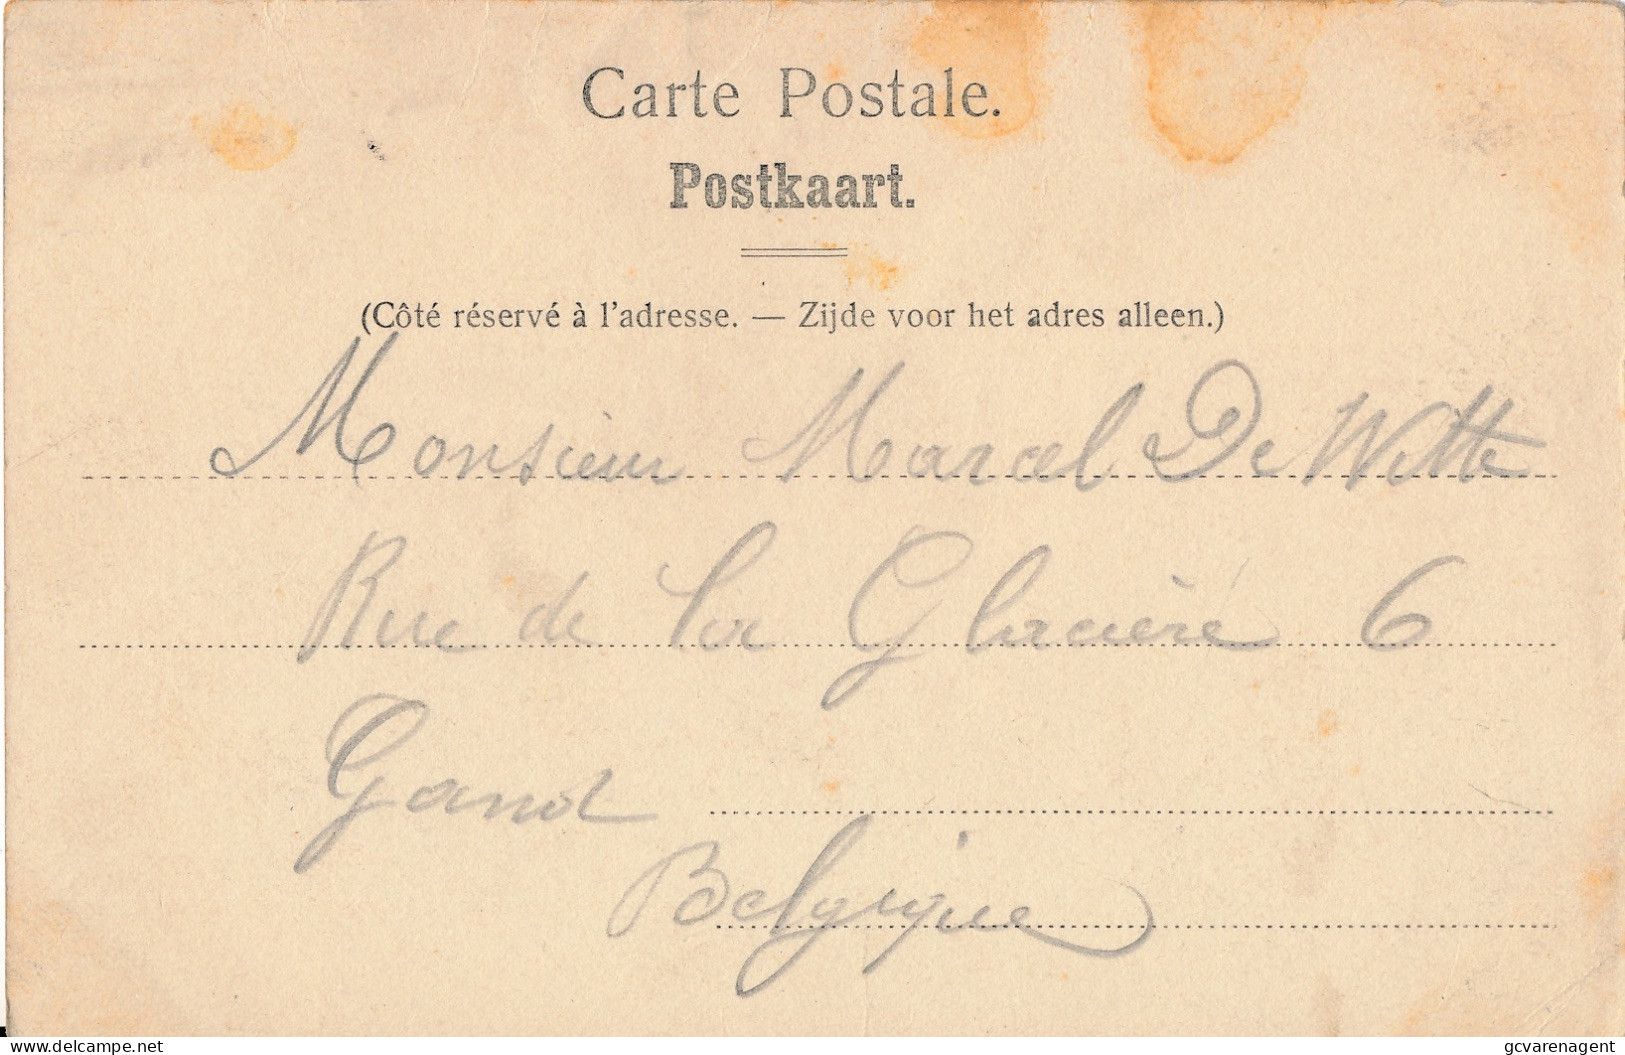 Carte Postale.
Postkaart.
(Côté réservé à l'adresse. — Zijde voor het adres alleen.)
Monsieur Marcel De Witte
Rue de la Glacière 6
Gand
Belgique
delcampe.net
gcvarenagent